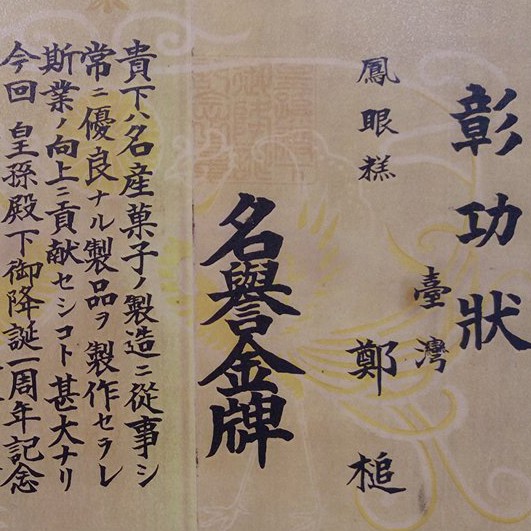 彰功狀
臺灣
鳳眼糕 鄭槌
名譽金牌
貴下ハ名産菓子ノ製造ニ從事シ
常ニ優良ナル製品ヲ製作セラレ
斯業ノ向上ニ貢献セシコト甚大ナリ
今回皇孫殿下御降誕一周年記念